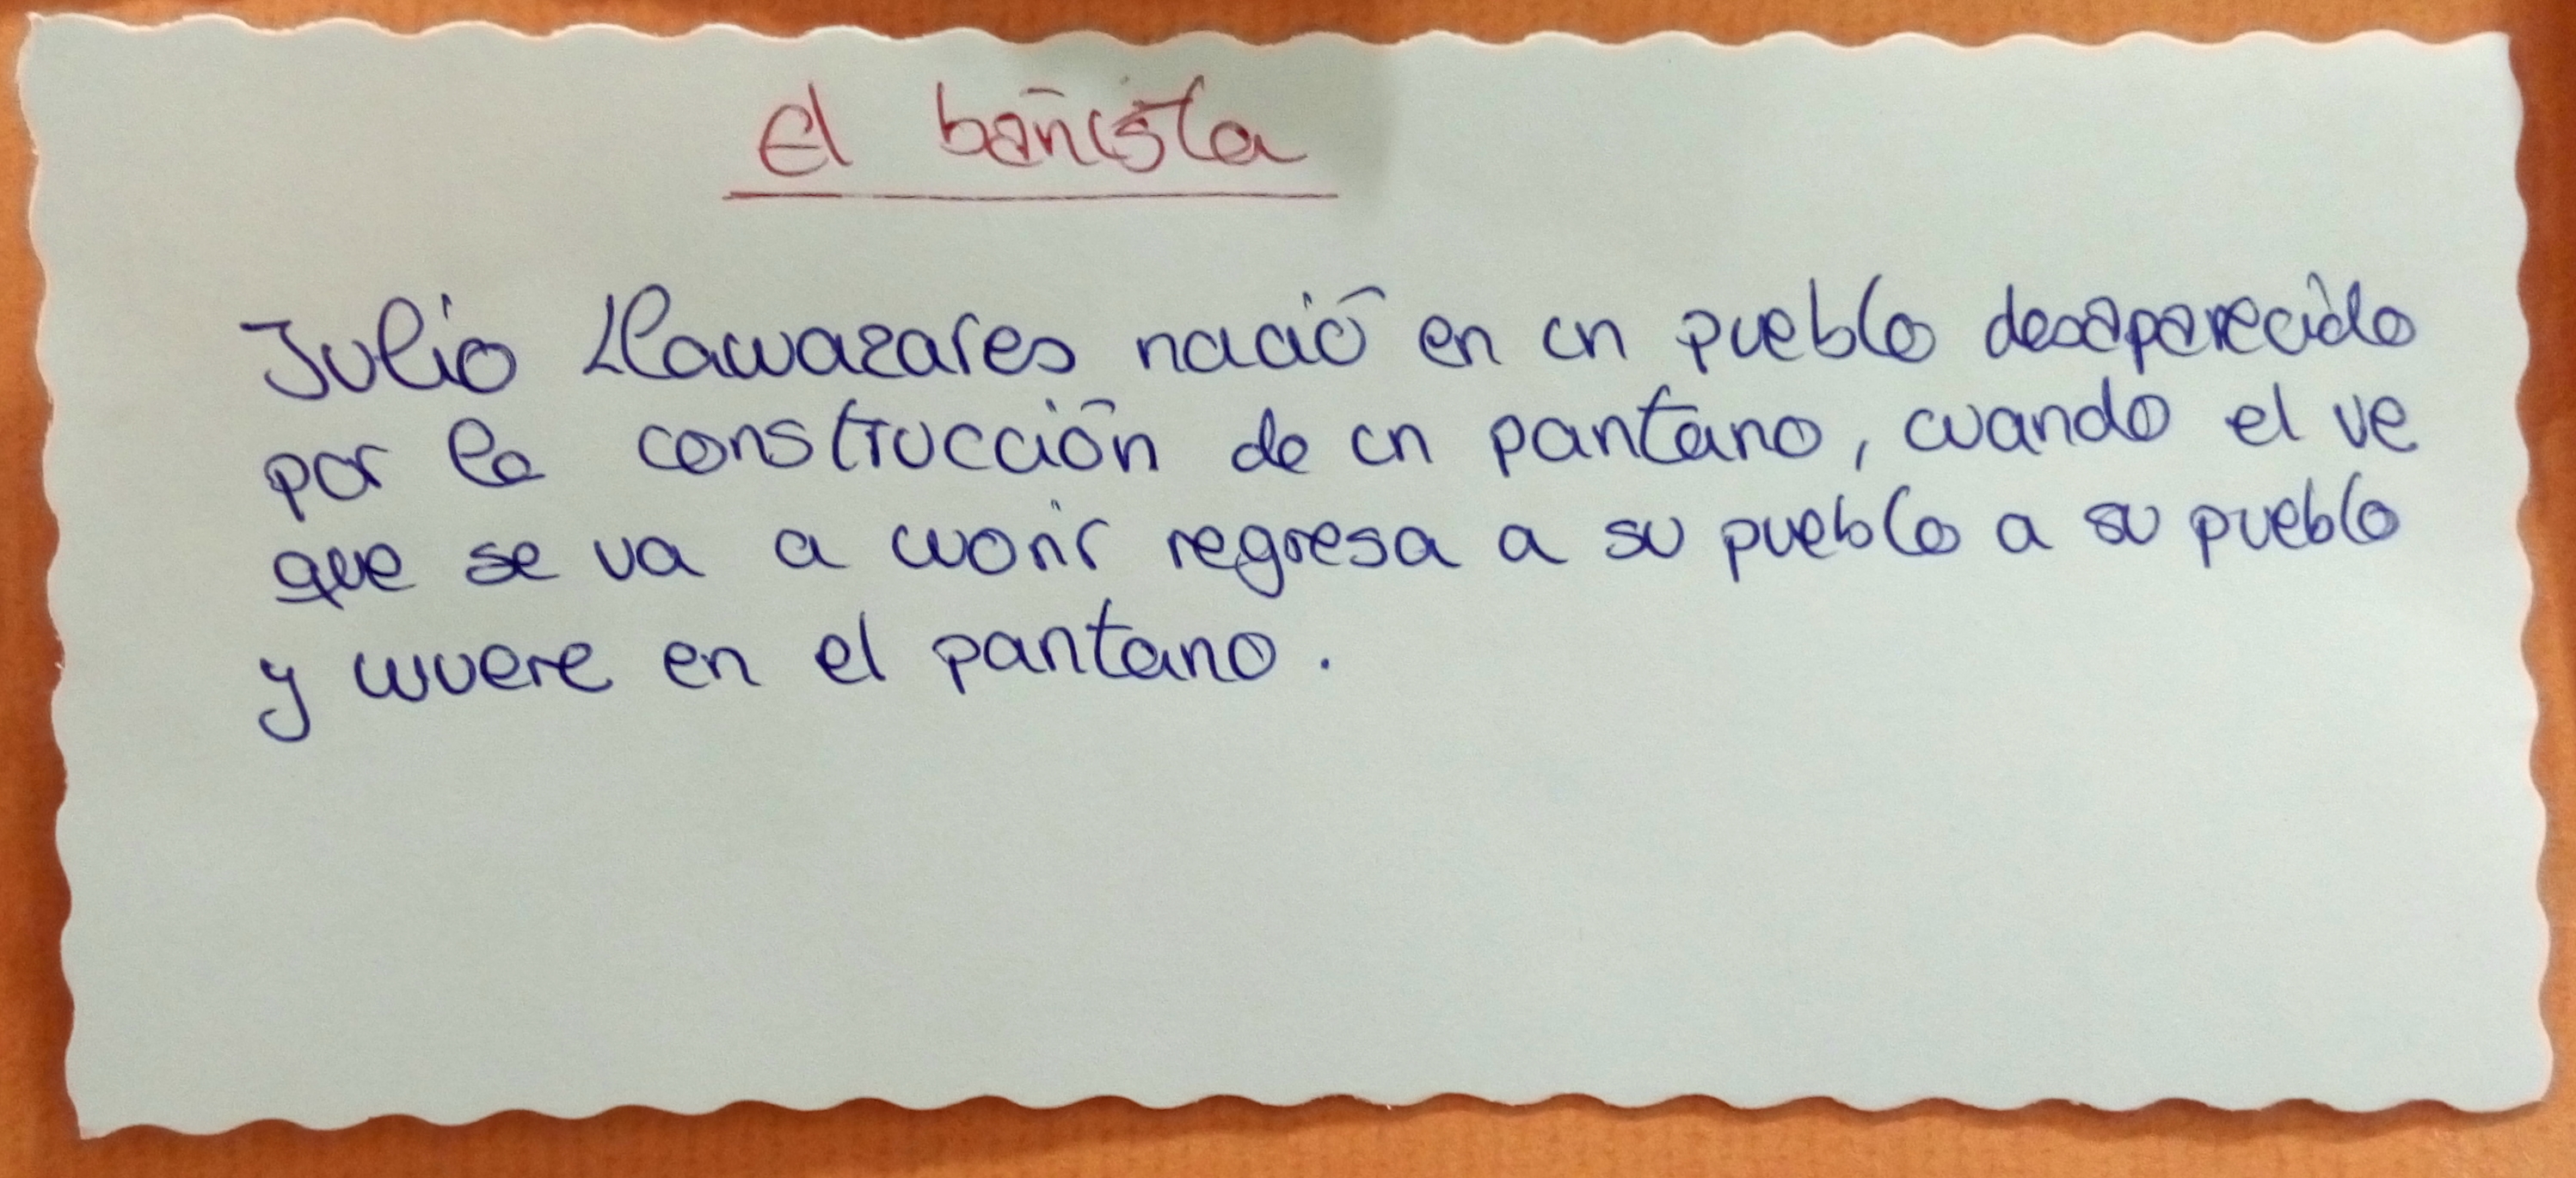 El bañista
Julio Llamazares nació en un pueblo desaparecido
por la construcción de un pantano, cuando el ve
que se va a morir regresa a su pueblo a su pueblo
y muere en el pantano.